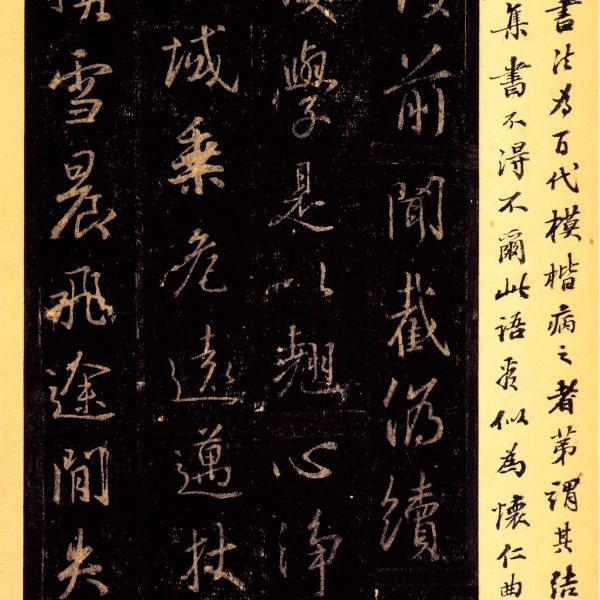 書法為百代模楷病之者第謂其結
集書不淂不爾此語似為懷仁曲
前聞截偽續
學是以翹心淨
域乘危遠邁杖
雪晨飛途間失